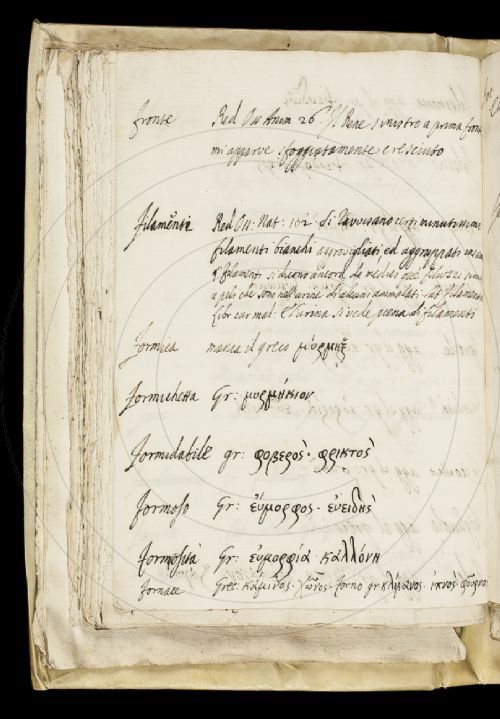 fronte Red Oss Anim 26. Il Rene sinistro a prima fronte
mi apparve sfoggiatamente cresciuto
filamenti Red. Oss: Nat: 102: si ravvisano certi minutissimi
filamenti bianchi avvivigliati ed aggruppati insieme
filamenti si dicono ancora da medici quei
a peli che sono nell'urine di alcuni ammalati. filamenti
libr cur mal: e l'urina si vede piena di filamenti
formica manca il greco μύρμηξ
formichetta Gr: μυρμήκιον
formidabile gr: φοβερος· φρικτος
formoso Gr: εὔμορφος· εὐειδης
formosità Gr: εὐμορφία καλλόνη
fornace Grec: κάμινος· χῶνος· forno gr κλίβανος· ἰπνος φοῦρνος